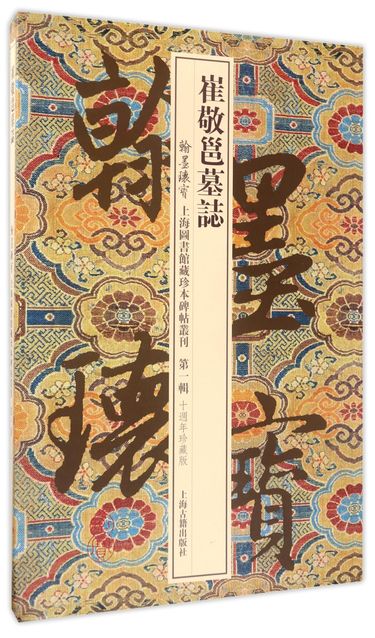 崔敬邕墓誌
翰墨瓌寶 上海圖書館藏珍本碑帖叢刊 第一輯 十週年珍藏版
上海古籍出版社
翰墨
瓌寶